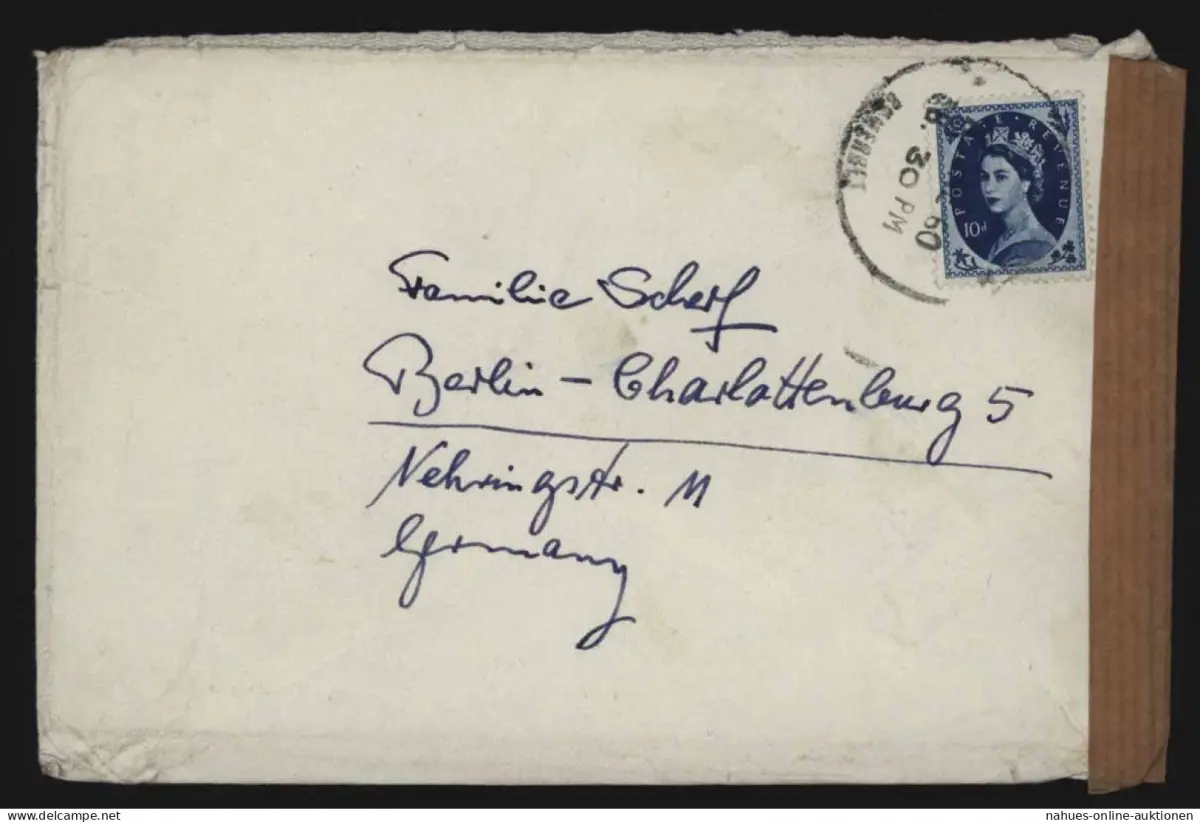 SOMERSET
30 PM
60
POSTAGE REVENUE
10d
Familie Scherf
Berlin – Charlottenburg 5
Nehringstr. 11
Germany
https://www.delcampe.net
nahues-online-auktionen